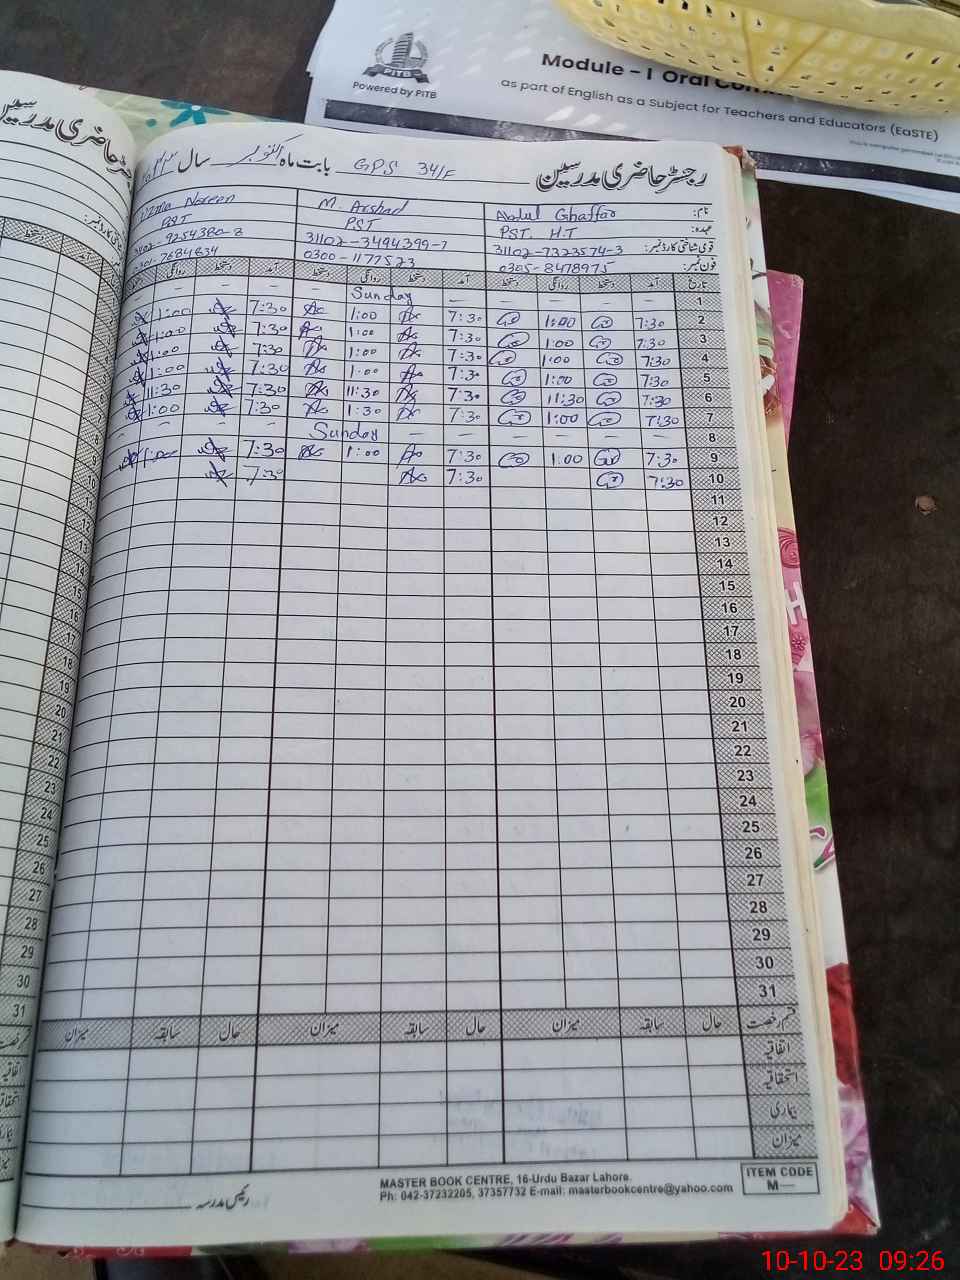 PITB
Powered by PITB
Module - I Oral
as part of English as a Subject for Teachers and Educators (EaSTE)
رجسٹر حاضری مدرسین GPS 34/F بابت ماہ اکتوبر سال
نام: Abdul Ghaffar M. Arshad Uzma Noreen
عہدہ: PST. H.T PST PST
قومی شناختی کارڈ نمبر: 31102-7323574-3 31102-3494399-7 31102-9254380-8
فون نمبر: 0305-8478975 0300-1177523 0301-7684834
تاریخ آمد دستخط روانگی دستخط آمد دستخط روانگی دستخط آمد دستخط روانگی دستخط
1 — — — — — — Sunday — — — —
2 7:30 1:00 7:30 1:00 7:30 1:00
3 7:30 1:00 7:30 1:00 7:30 1:00
4 7:30 1:00 7:30 1:00 7:30 1:00
5 7:30 1:00 7:30 1:00 7:30 1:00
6 7:30 11:30 7:30 11:30 7:30 11:30
7 7:30 1:00 7:30 1:30 7:30 1:00
8 — — — — — — Sunday — — — —
9 7:30 1:00 7:30 1:00 7:30 1:00
10 7:30 7:30 7:30
11
12
13
14
15
16
17
18
19
20
21
22
23
24
25
26
27
28
29
30
31
قسم رخصت حال سابقہ میزان حال سابقہ میزان حال سابقہ میزان
اتفاقیہ
استحقاقیہ
بیماری
میزان
رئیس مدرسہ
MASTER BOOK CENTRE, 16-Urdu Bazar Lahore.
Ph: 042-37232205, 37357732 E-mail: masterbookcentre@yahoo.com
ITEM CODE
M—
10-10-23 09:26